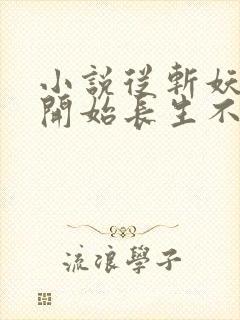 小說從斬妖
開始長生不
流浪學子